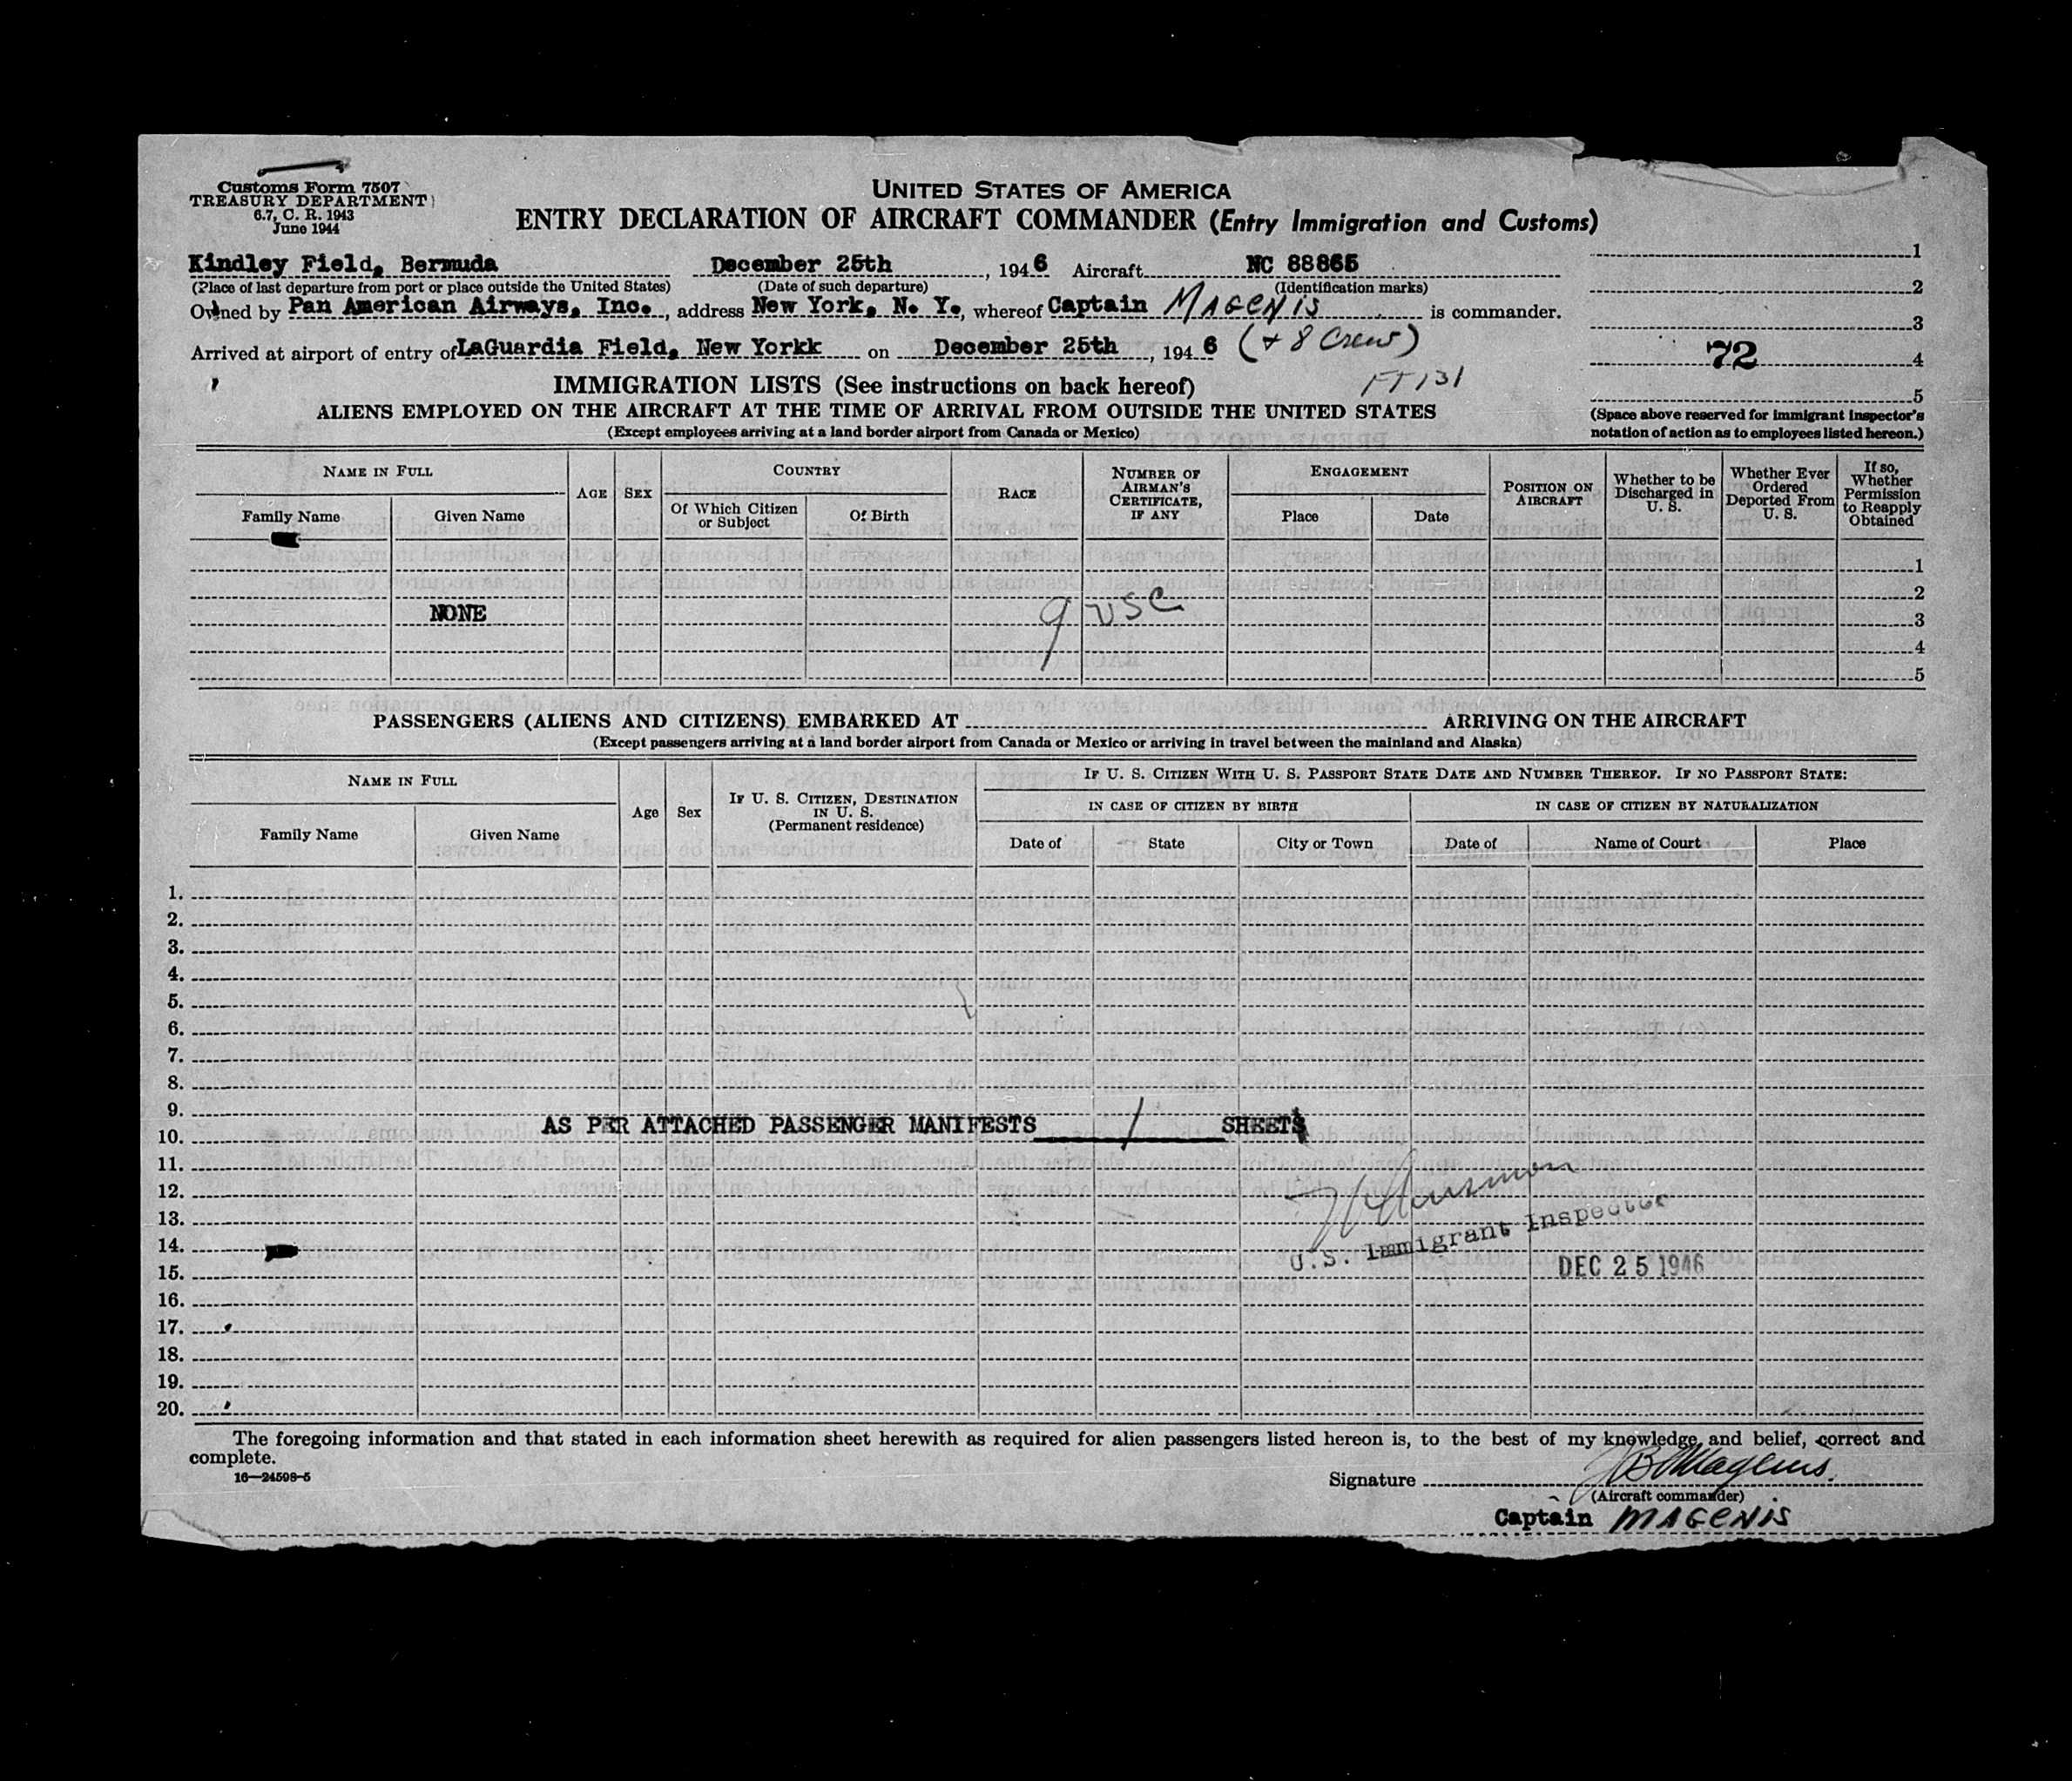 Customs Form 7507
TREASURY DEPARTMENT
6.7, C. R. 1943
June 1944
UNITED STATES OF AMERICA
ENTRY DECLARATION OF AIRCRAFT COMMANDER (Entry Immigration and Customs)
Kindley Field, Bermuda December 25th, 1946 Aircraft NC 88865
(Place of last departure from port or place outside the United States) (Date of such departure) (Identification marks)
Owned by Pan American Airways, Inc., address New York, N. Y., whereof Captain MAGENIS is commander.
Arrived at airport of entry of LaGuardia Field, New Yorkk on December 25th, 1946 (+ 8 Crew)
1
2
3
72 4
5
IMMIGRATION LISTS (See instructions on back hereof) FT 131
ALIENS EMPLOYED ON THE AIRCRAFT AT THE TIME OF ARRIVAL FROM OUTSIDE THE UNITED STATES
(Except employees arriving at a land border airport from Canada or Mexico)
(Space above reserved for immigrant inspector's
notation of action as to employees listed hereon.)
NAME IN FULL
Family Name Given Name
AGE SEX
COUNTRY
Of Which Citizen or Subject Of Birth
RACE
NUMBER OF AIRMAN'S CERTIFICATE, IF ANY
ENGAGEMENT
Place Date
POSITION ON AIRCRAFT
Whether to be Discharged in U. S.
Whether Ever Ordered Deported From U. S.
If so, Whether Permission to Reapply Obtained
1
2
NONE 9 USC 3
4
5
PASSENGERS (ALIENS AND CITIZENS) EMBARKED AT ARRIVING ON THE AIRCRAFT
(Except passengers arriving at a land border airport from Canada or Mexico or arriving in travel between the mainland and Alaska)
NAME IN FULL
Family Name Given Name
Age Sex
IF U. S. CITIZEN, DESTINATION IN U. S.
(Permanent residence)
IF U. S. CITIZEN WITH U. S. PASSPORT STATE DATE AND NUMBER THEREOF. IF NO PASSPORT STATE:
IN CASE OF CITIZEN BY BIRTH IN CASE OF CITIZEN BY NATURALIZATION
Date of State City or Town Date of Name of Court Place
1.
2.
3.
4.
5.
6.
7.
8.
9.
AS PER ATTACHED PASSENGER MANIFESTS 1 SHEETS
10.
11.
12.
13.
U.S. Immigrant Inspector
14.
DEC 25 1946
15.
16.
17.
18.
19.
20.
The foregoing information and that stated in each information sheet herewith as required for alien passengers listed hereon is, to the best of my knowledge and belief, correct and
complete.
16—24598-5
Signature JB Magenis.
(Aircraft commander)
Captain MAGENIS